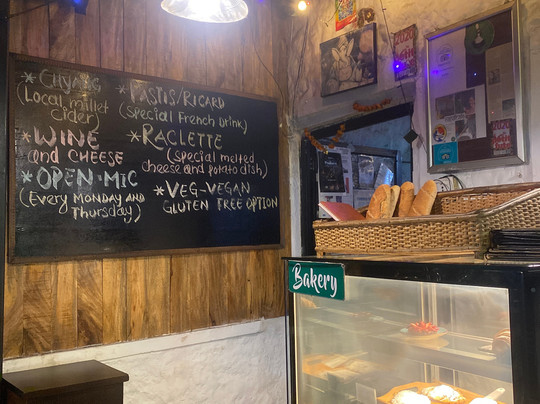 *CHYANG
(Local millet
cider)
*WINE
and CHEESE
*OPEN-MIC
(Every MONDAY AND
Thursday)
*PASTIS/RICARD
(Special French Drink)
*RACLETTE
(special melted
cheese and potato dish)
*VEG-VEGAN
GLUTEN FREE OPTION
Bakery